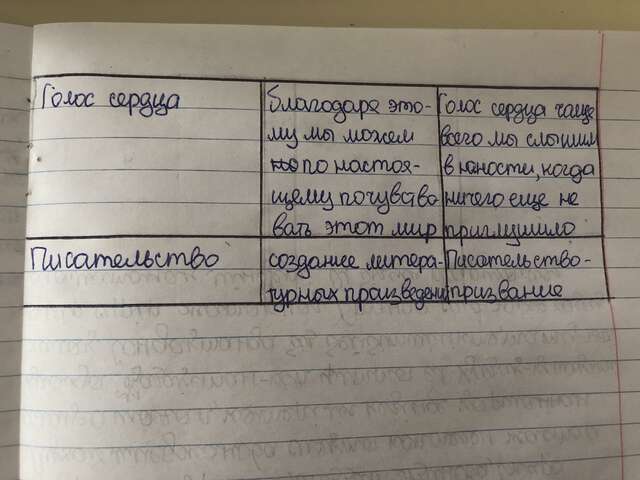 Голос сердца
благодаря это-
му мы можем
по настоя-
щему почувство
вать этот мир
Голос сердца чаще
всего мы слышим
в юности, когда
ничего еще не
приглушило
Писательство
создание литера-
турных произведени
Писательство-
призвание